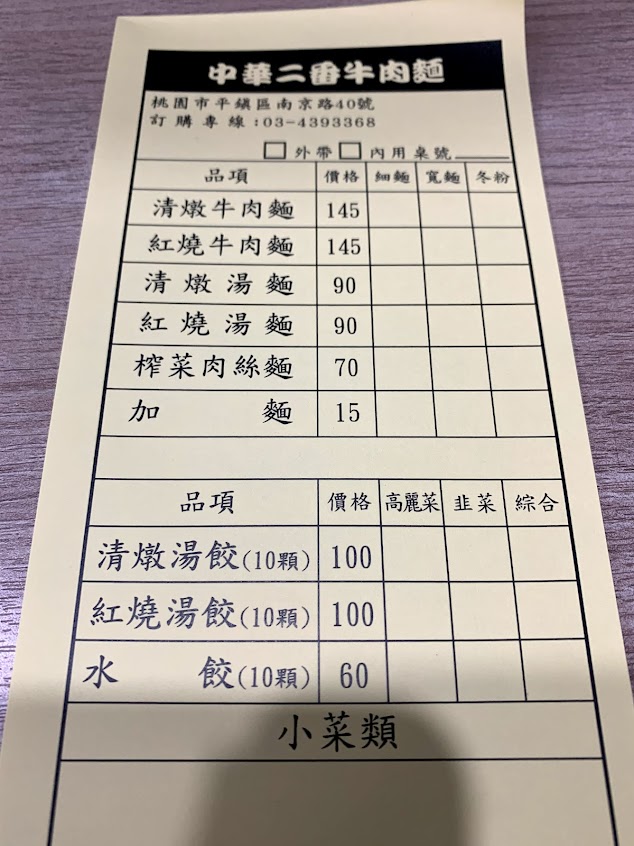 中華二番牛肉麵
桃園市平鎮區南京路40號
訂購專線:03-4393368
□外帶□內用桌號____
品項 價格 細麵 寬麵 冬粉
清燉牛肉麵 145
紅燒牛肉麵 145
清燉湯麵 90
紅燒湯麵 90
榨菜肉絲麵 70
加麵 15
品項 價格 高麗菜 韭菜 綜合
清燉湯餃(10顆) 100
紅燒湯餃(10顆) 100
水餃(10顆) 60
小菜類